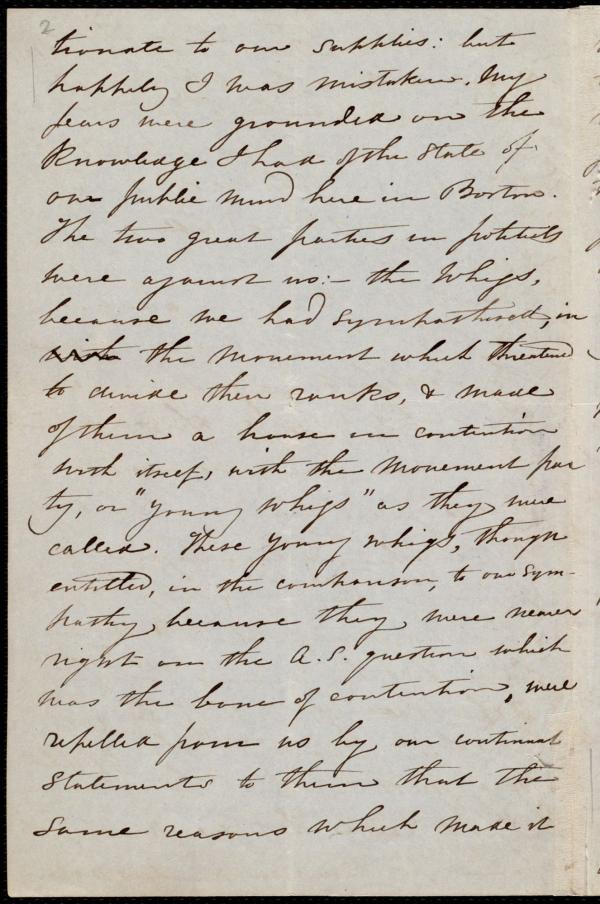 2
tionate to our supplies: but
happily I was mistaken. My
fears were grounded on the
knowledge I had of the state of
our public mind here in Boston.
The two great parties in politics
were against us:- the Whigs,
because we had sympathised, in
with the movement which threatened
to divide their ranks, & made
of them a house in contention
with itself, with the movement par
ty, or "young whigs" as they were
called. These young whigs, though
entitled, in the comparison, to our sym-
pathy, because they were nearer
right on the A.S. question which
was the bone of contention, were
repelled from us by our continual
statements to them that the
same reasons which made it